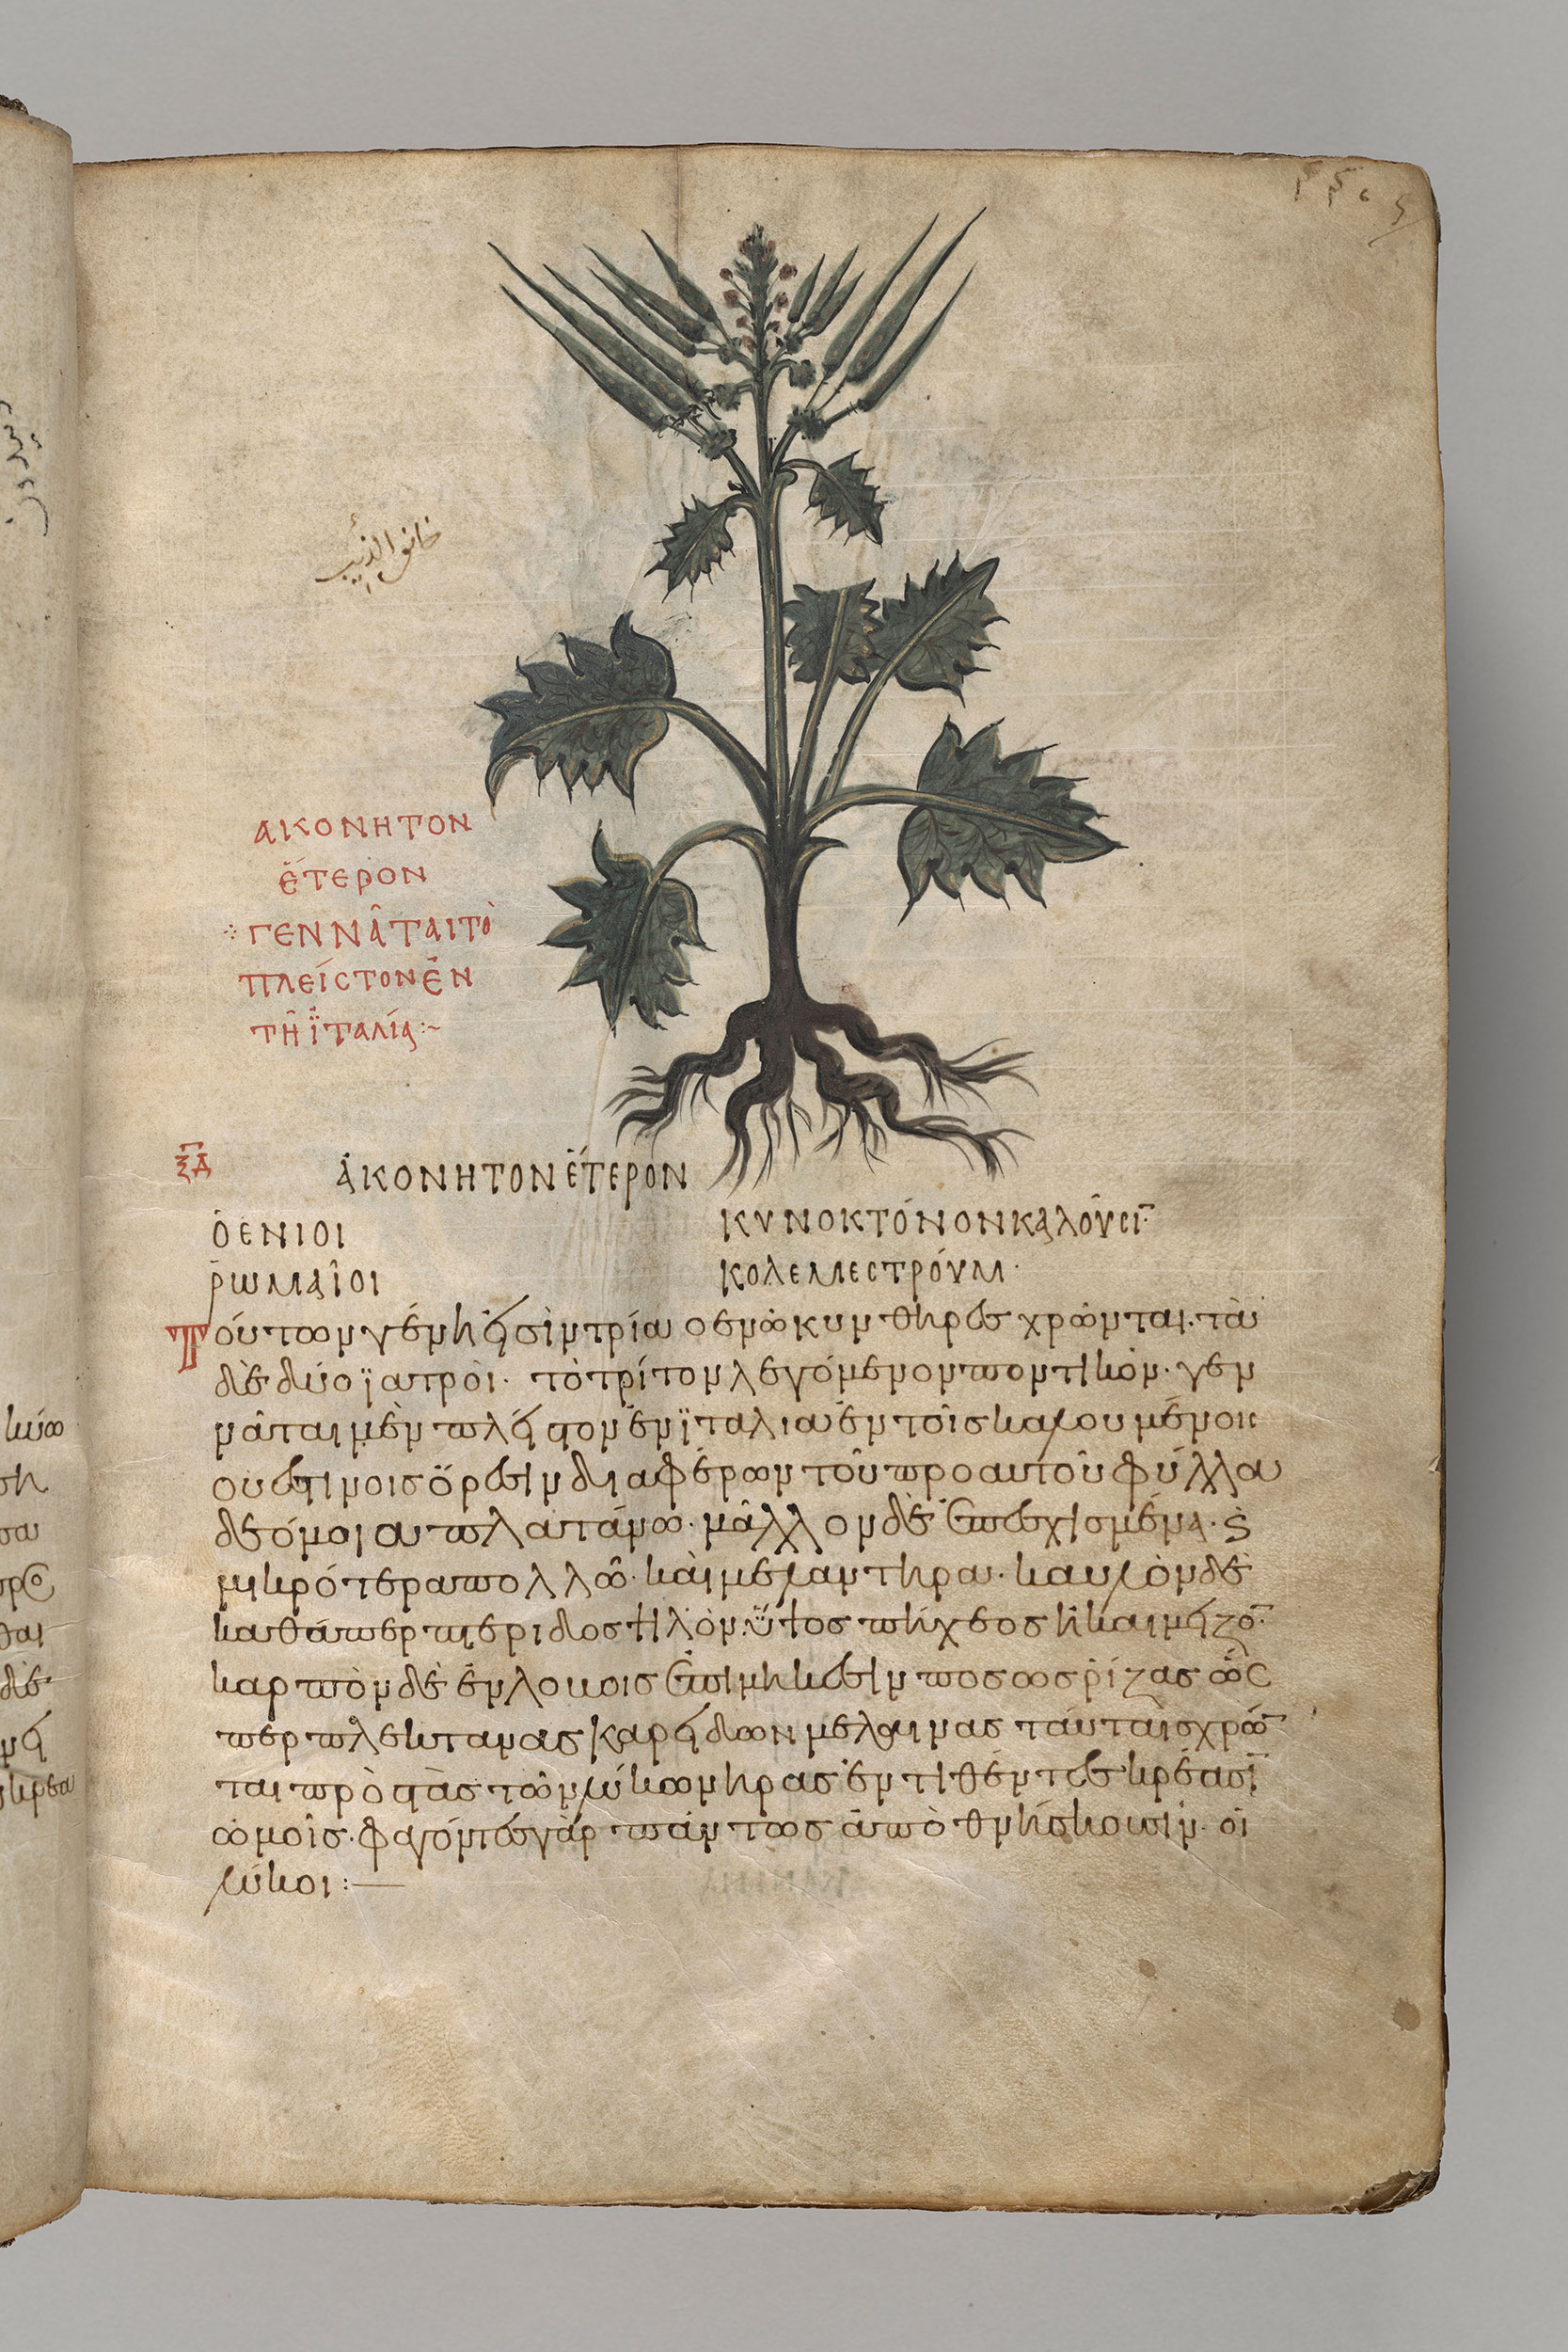 خانق الذئب
ΑΚΟΝΗΤΟΝ
ἕΤΕΡΟΝ
ΓΕΝΝᾶΤΑΙ Τὸ
ΠΛΕίCΤΟΝ ἐΝ
Τῆ ἸΤΑΛίᾳ:~
ξδ
ἀΚΟΝΗΤΟΝ ἕΤΕΡΟΝ
ὁΕΝΙΟΙ
ΚΥΝΟΚΤόΝΟΝ ΚΑΛΟῦCΙ
ῥΩΜΑῖΟΙ
ΚΟΛΕΜΕCΤΡΟύΜ·
Τούτων γένη εἰσὶν τρία ὁ ἐνὼ κυνθηρες χρῶνται· τὰ
δὲ δύο ἰατροὶ· τὸ τρίτον λεγόμενον ποντικὸν· γεν
νᾶται μὲν πλεῖστον ἐν ἰταλία ἐν τοῖς καλουμένοις
ουεστίνοις ὄρεσιν διαφέρων τοῦ προ αυτοῦ φύλλα
δε όμοια πλατάνω· μᾶλλον δὲ ἐπεσχισμένα· ϛ̀
μικρότερα πολλῶ· καὶ μελαντηρα· καυλὸν δὲ
καθάπερ πτεριδος ψιλὸν· ὕψος πήχεος ἢ και μείζο
καρπὸν δὲ ἐν λοβοις ἐπιμήκεσιν ποσως ρίζας ὥσ
περ πλεκτανας καρείδων μελαινας ταύταις χρῶ
ται πρὸς τὰς τῶν λύκων θηρας ἐντιθέντες κρέασι
ὠμοῖς· φαγόντες γὰρ πάντως ἀπὸθνήσκουσιν· οἱ
λύκοι:—